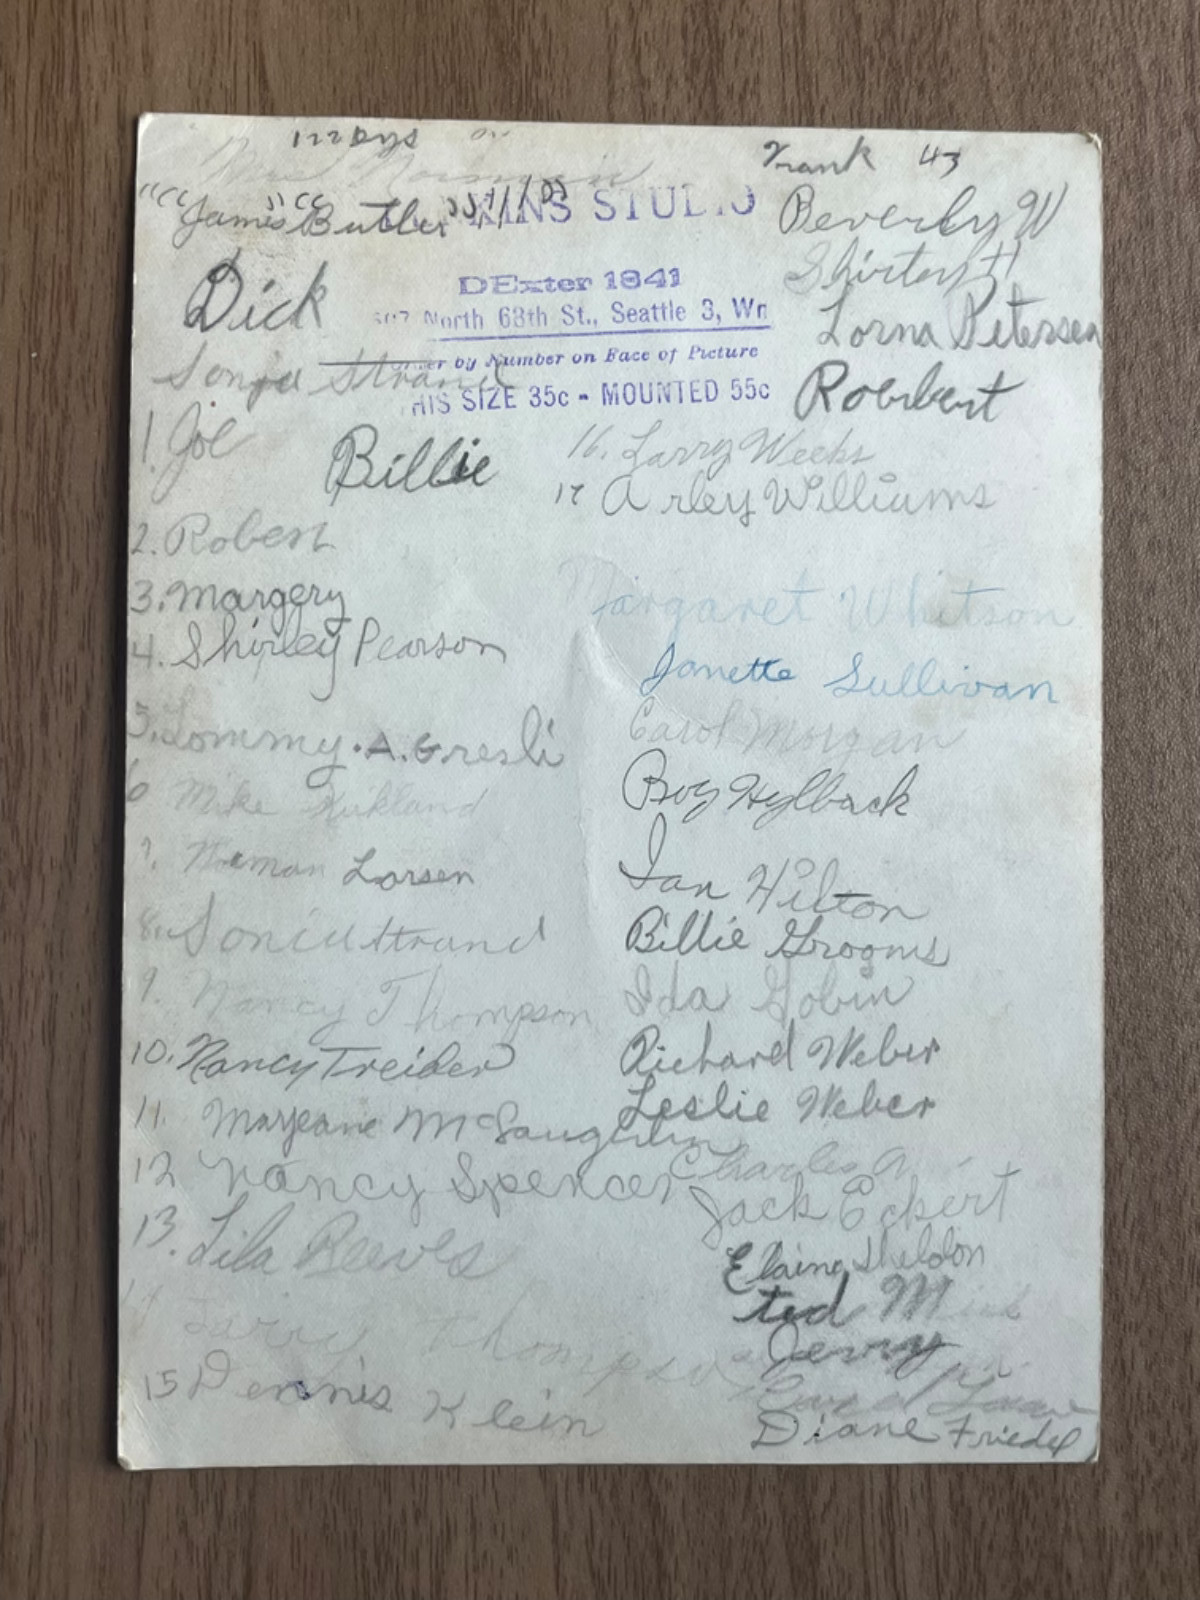 Frank 43
Mrs Norman
"James" Butler
KINS STUDIO
Beverly W
Shirley H
Dick
DExter 1841
North 68th St., Seattle 3, Wn
Lorna Petersen
by Number on Face of Picture
Sonja Strand
HIS SIZE 35c - MOUNTED 55c
Roerbert
1. Joe
Billie
16. Larry Weeks
17 Arley Williams
2. Robert
3. Margery
4. Shirley Pearson
5. Tommy. A. Gresli
6 Mike Kirkland
7. Norman Larsen
8. Sonia Strand
9. Nancy Thompson
10. Nancy Treider
11. Marjeane McLaughlin
12 Nancy Spencer
13. Lila Reeves
Thompson
15 Dennis Klein
Margaret Whitson
Janette Sullivan
Carol Morgan
Boy Hylback
Ian Hilton
Billie Grooms
Ida Gobin
Richard Weber
Leslie Weber
Charles A
Jack Eckert
Elaine Sheldon
ted M
Jerry
Diane Friedel